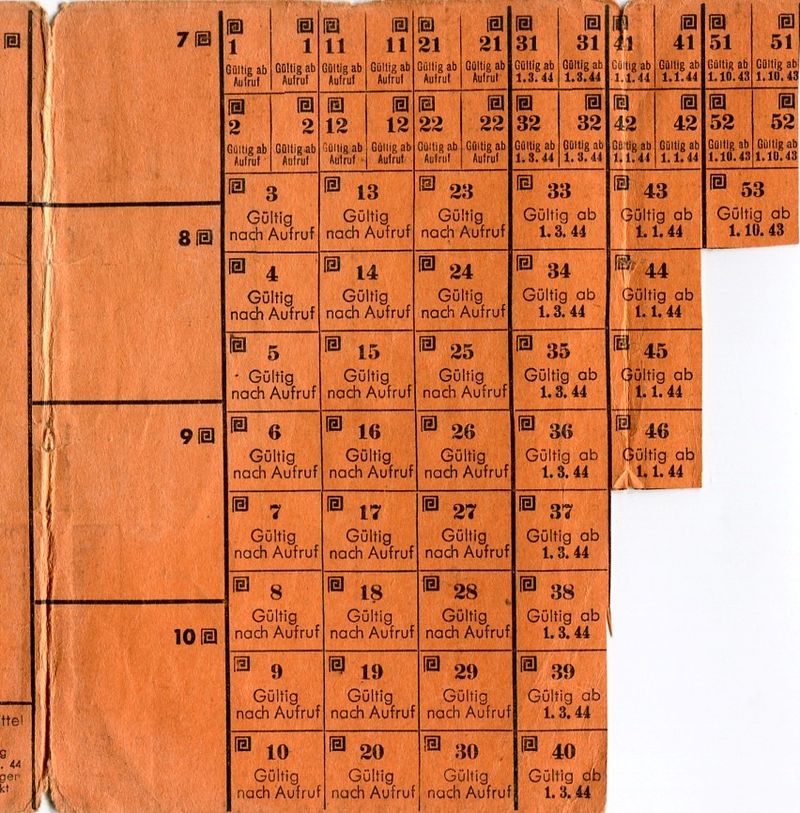 7
1 1 11 11 21 21 31 31 41 41 51 51
Gültig ab Gültig ab Gültig ab Gültig ab Gültig ab Gültig ab Gültig ab Gültig ab Gültig ab Gültig ab Gültig ab Gültig ab
Aufruf Aufruf Aufruf Aufruf Aufruf Aufruf 1.3.44 1.3.44 1.1.44 1.1.44 1.10.43 1.10.43
2 2 12 12 22 22 32 32 42 42 52 52
Gültig ab Gültig ab Gültig ab Gültig ab Gültig ab Gültig ab Gültig ab Gültig ab Gültig ab Gültig ab Gültig ab Gültig ab
Aufruf Aufruf Aufruf Aufruf Aufruf Aufruf 1.3.44 1.3.44 1.1.44 1.1.44 1.10.43 1.10.43
3 13 23 33 43 53
Gültig Gültig Gültig Gültig ab Gültig ab Gültig ab
nach Aufruf nach Aufruf nach Aufruf 1.3.44 1.1.44 1.10.43
8
4 14 24 34 44
Gültig Gültig Gültig Gültig ab Gültig ab
nach Aufruf nach Aufruf nach Aufruf 1.3.44 1.1.44
5 15 25 35 45
Gültig Gültig Gültig Gültig ab Gültig ab
nach Aufruf nach Aufruf nach Aufruf 1.3.44 1.1.44
9
6 16 26 36 46
Gültig Gültig Gültig Gültig ab Gültig ab
nach Aufruf nach Aufruf nach Aufruf 1.3.44 1.1.44
7 17 27 37
Gültig Gültig Gültig Gültig ab
nach Aufruf nach Aufruf nach Aufruf 1.3.44
8 18 28 38
Gültig Gültig Gültig Gültig ab
nach Aufruf nach Aufruf nach Aufruf 1.3.44
10
9 19 29 39
Gültig Gültig Gültig Gültig ab
nach Aufruf nach Aufruf nach Aufruf 1.3.44
10 20 30 40
Gültig Gültig Gültig Gültig ab
nach Aufruf nach Aufruf nach Aufruf 1.3.44
ttel
g
. 44
ger
kt